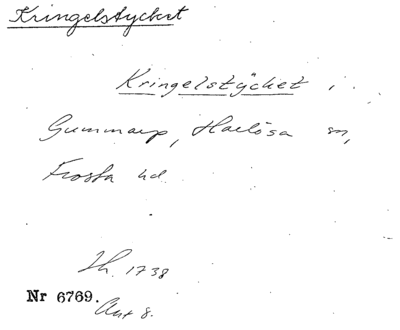 Kringelstycket
Kringelstycket i
Gummarp, Harlösa sn,
Frosta hd
Lh. 1738
Nr 6769.
Akt 8.